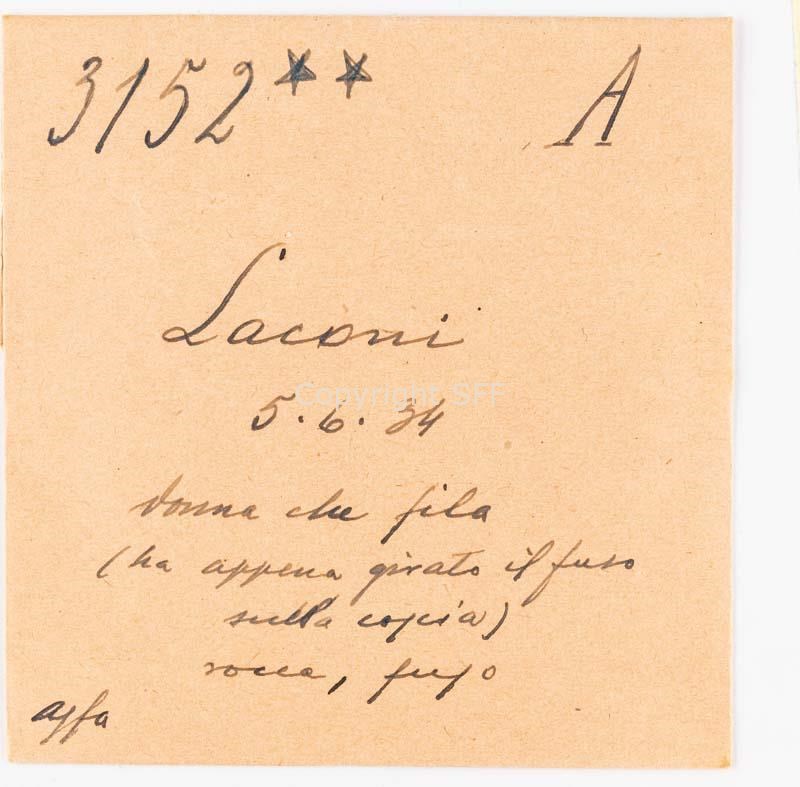 3152** A
Laconi
Copyright SFF
5.6.34
donna che fila
(ha appena girato il fuso
sulla coscia)
rocca, fuso
agfa